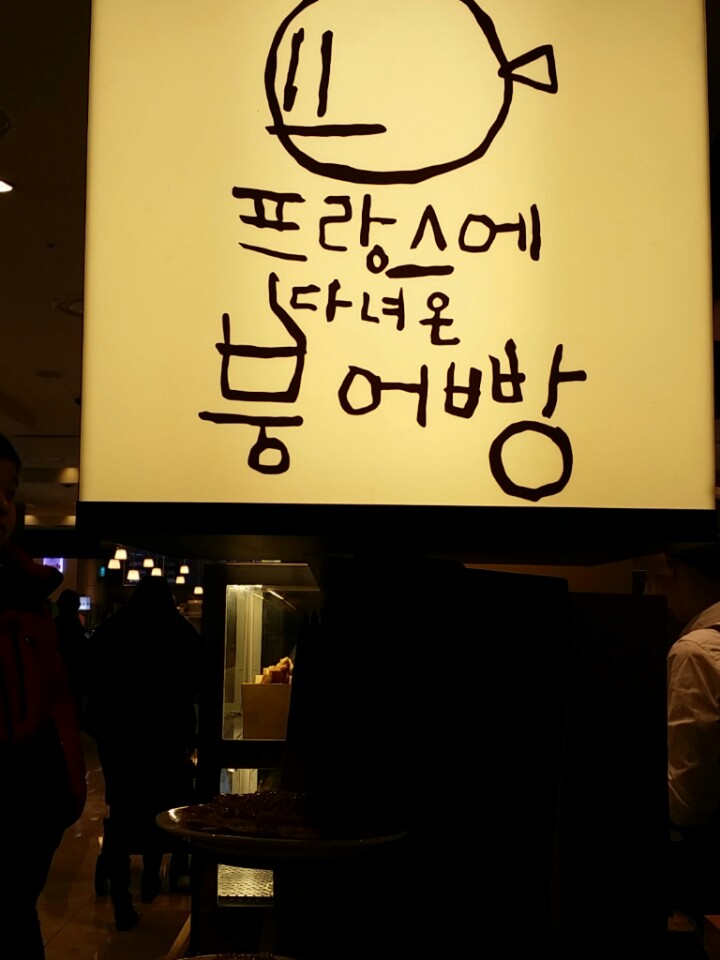 프랑스에
다녀온
붕어빵